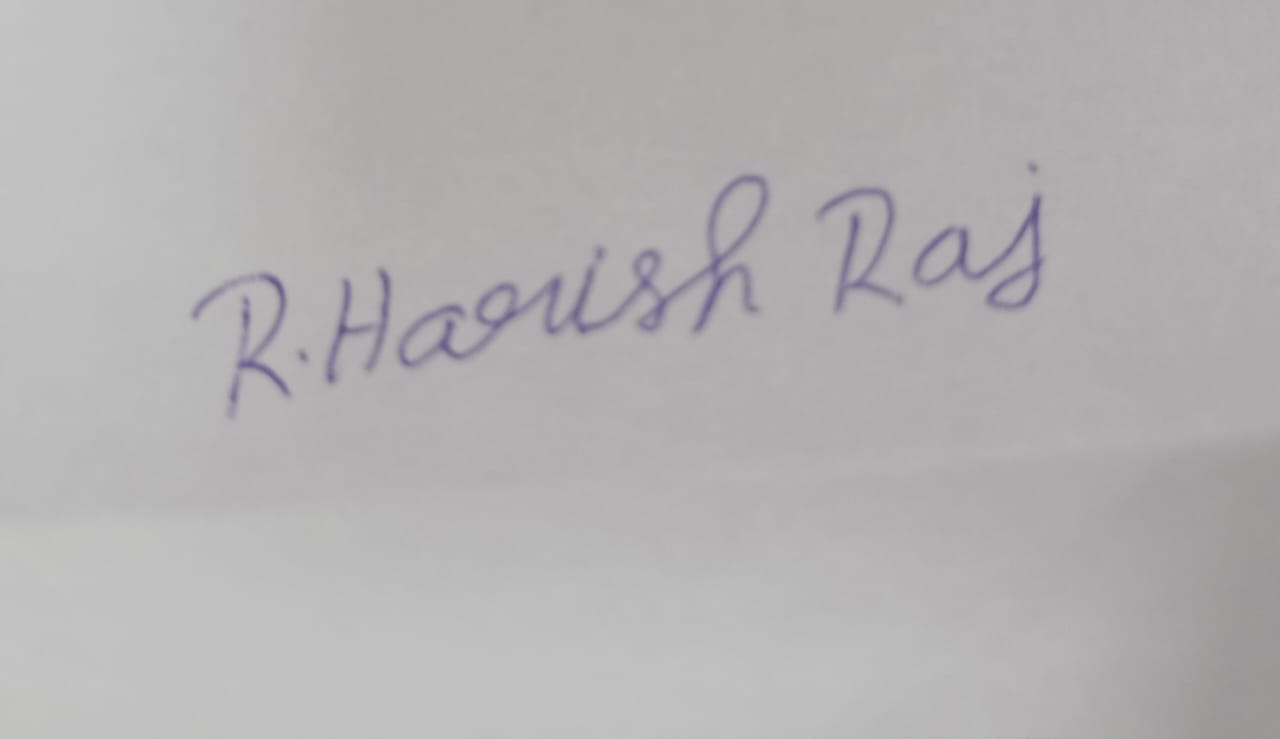 R. Harish Raj